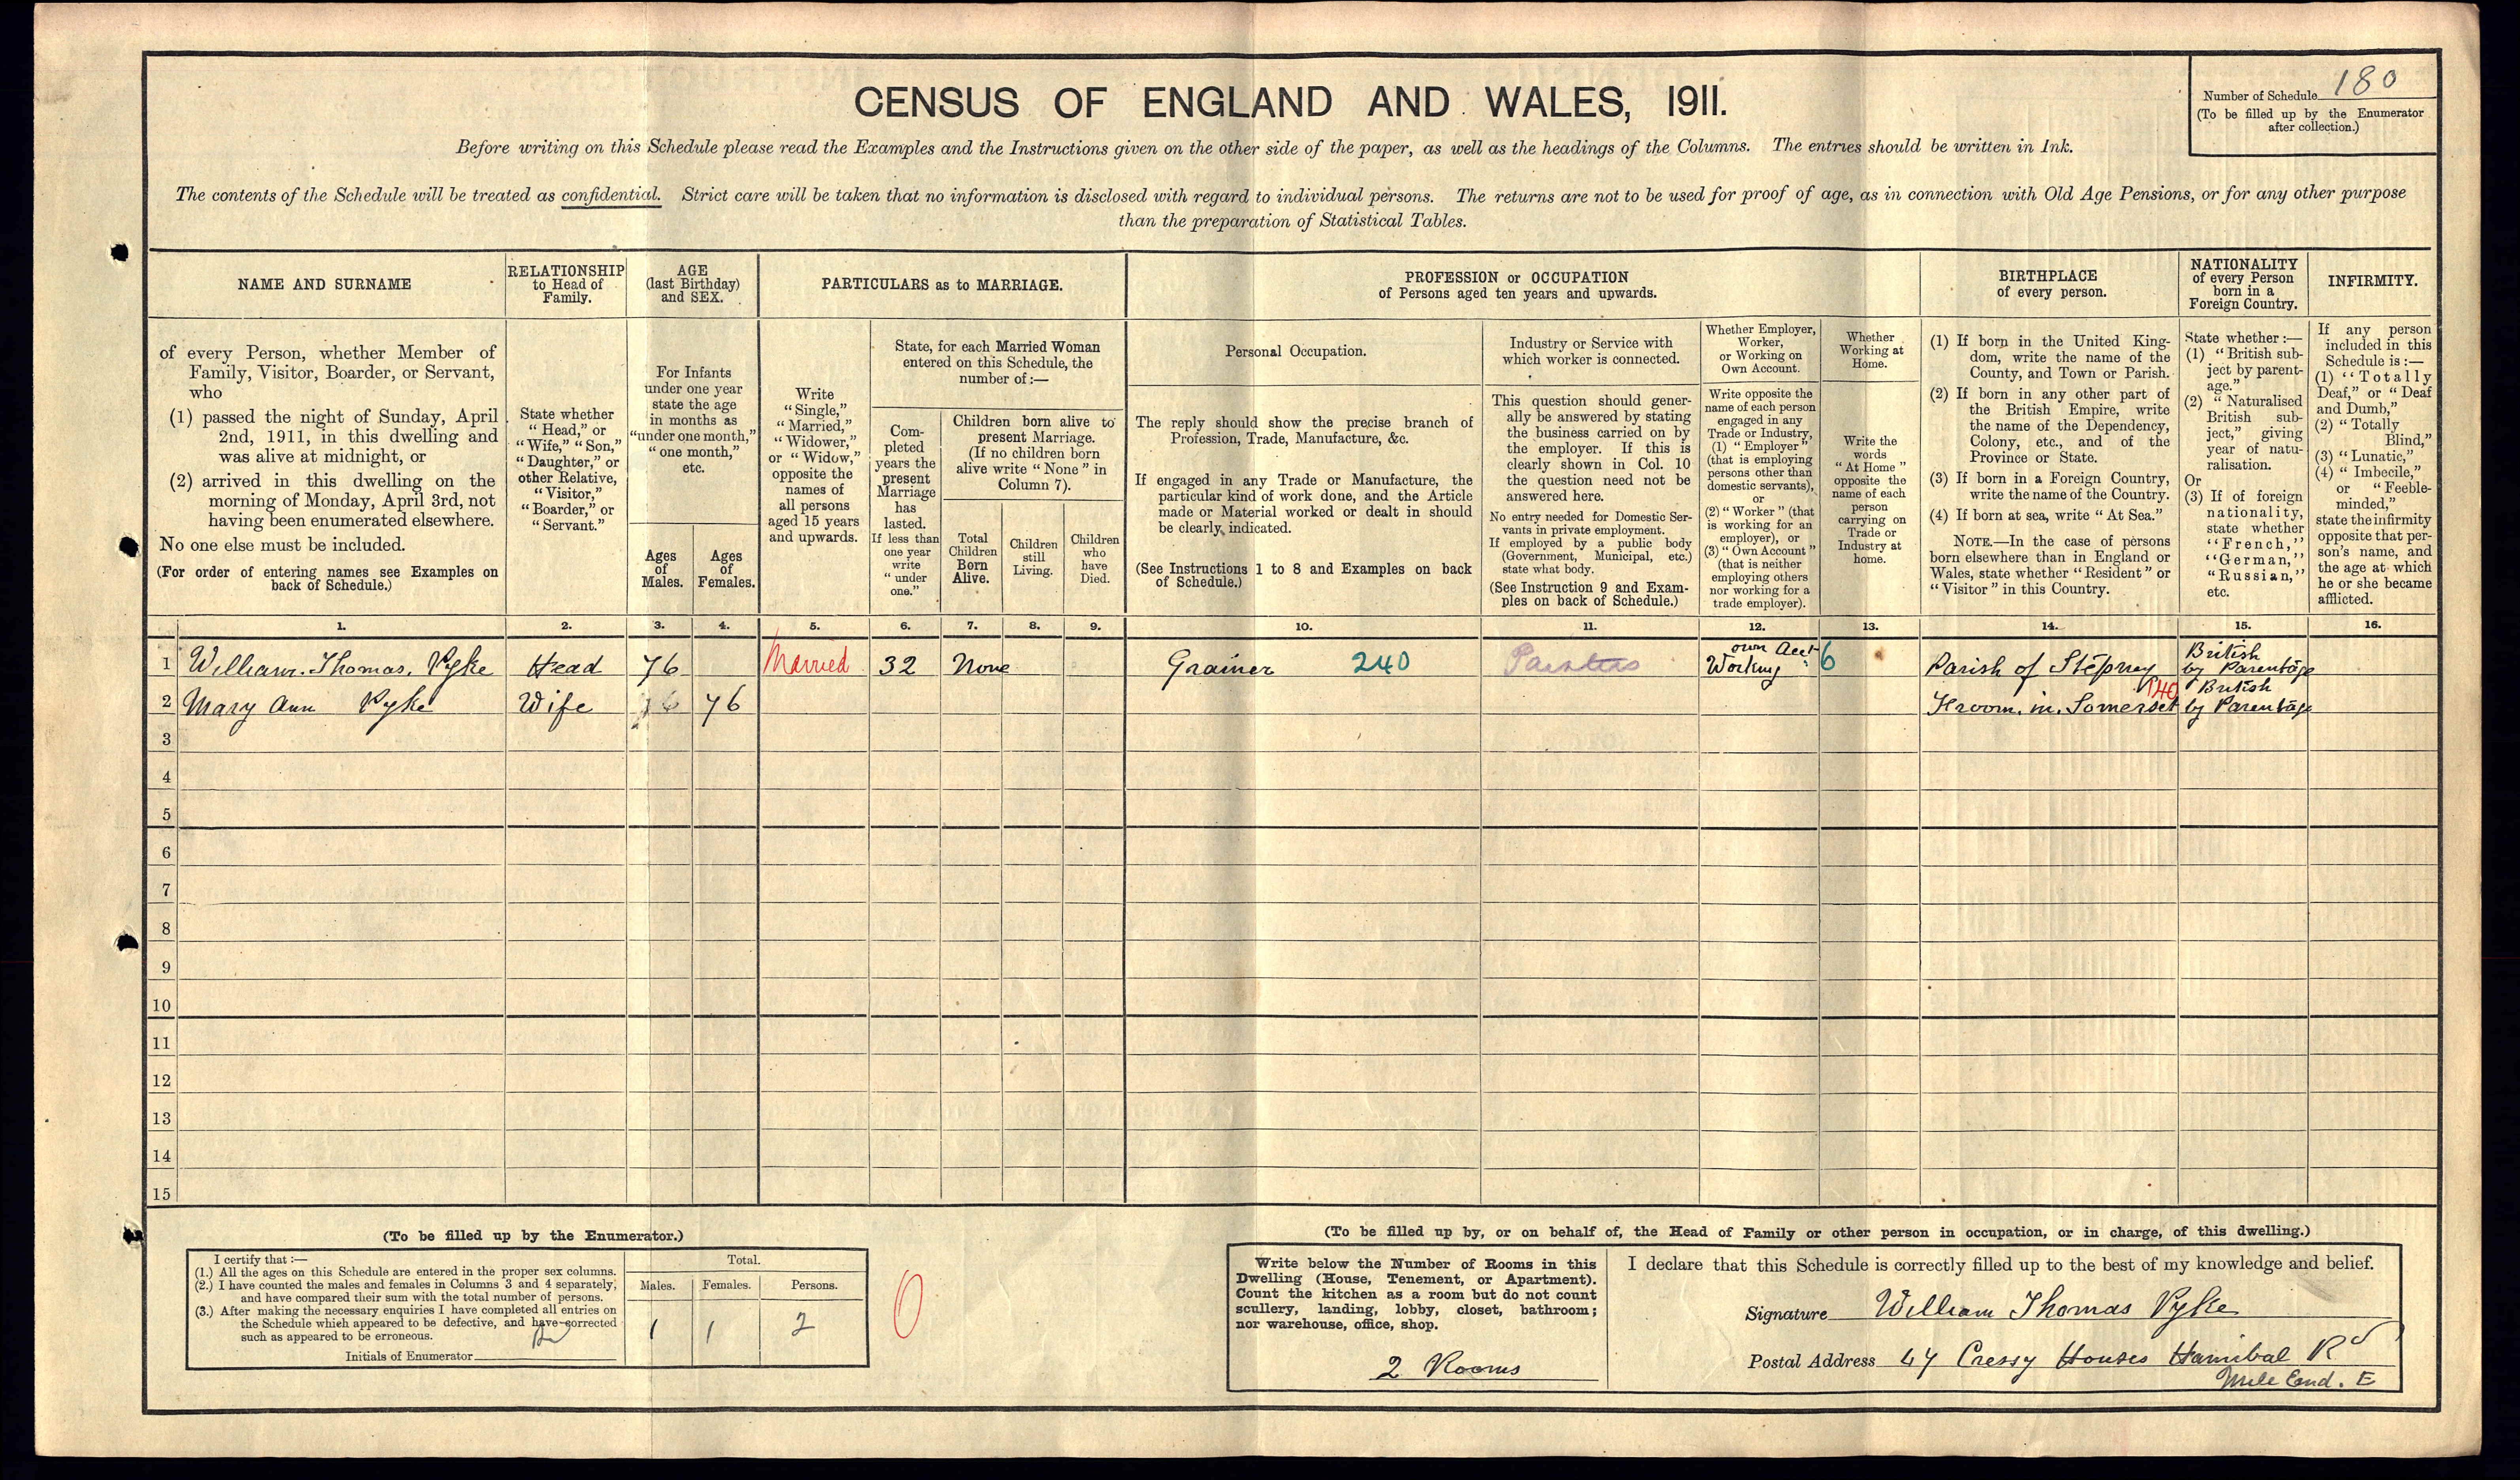 Number of Schedule 180
(To be filled up by the Enumerator
after collection.)
CENSUS OF ENGLAND AND WALES, 1911.
Before writing on this Schedule please read the Examples and the Instructions given on the other side of the paper, as well as the headings of the Columns. The entries should be written in Ink.
The contents of the Schedule will be treated as confidential. Strict care will be taken that no information is disclosed with regard to individual persons. The returns are not to be used for proof of age, as in connection with Old Age Pensions, or for any other purpose
than the preparation of Statistical Tables.
NAME AND SURNAME
of every Person, whether Member of
Family, Visitor, Boarder, or Servant,
who
(1) passed the night of Sunday, April
2nd, 1911, in this dwelling and
was alive at midnight, or
(2) arrived in this dwelling on the
morning of Monday, April 3rd, not
having been enumerated elsewhere.
No one else must be included.
(For order of entering names see Examples on
back of Schedule.)
RELATIONSHIP
to Head of
Family.
State whether
"Head," or
"Wife," "Son,"
"Daughter," or
other Relative,
"Visitor,"
"Boarder," or
"Servant."
AGE
(last Birthday)
and SEX.
For Infants
under one year
state the age
in months as
"under one month,"
"one month,"
etc.
Ages
of
Males.
Ages
of
Females.
PARTICULARS as to MARRIAGE.
Write
"Single,"
"Married,"
"Widower,"
or "Widow,"
opposite the
names of
all persons
aged 15 years
and upwards.
State, for each Married Woman
entered on this Schedule, the
number of :—
Com-
pleted
years the
present
Marriage
has
lasted.
If less than
one year
write
"under
one."
Children born alive to
present Marriage.
(If no children born
alive write "None" in
Column 7).
Total
Children
Born
Alive.
Children
still
Living.
Children
who
have
Died.
PROFESSION or OCCUPATION
of Persons aged ten years and upwards.
Personal Occupation.
The reply should show the precise branch of
Profession, Trade, Manufacture, &c.
If engaged in any Trade or Manufacture, the
particular kind of work done, and the Article
made or Material worked or dealt in should
be clearly indicated.
(See Instructions 1 to 8 and Examples on back
of Schedule.)
Industry or Service with
which worker is connected.
This question should gener-
ally be answered by stating
the business carried on by
the employer. If this is
clearly shown in Col. 10
the question need not be
answered here.
No entry needed for Domestic Ser-
vants in private employment.
If employed by a public body
(Government, Municipal, etc.)
state what body.
(See Instruction 9 and Exam-
ples on back of Schedule.)
Whether Employer,
Worker,
or Working on
Own Account.
Write opposite the
name of each person
engaged in any
Trade or Industry,
(1) "Employer"
(that is employing
persons other than
domestic servants),
or
(2) "Worker" (that
is working for an
employer), or
(3) "Own Account"
(that is neither
employing others
nor working for a
trade employer).
Whether
Working at
Home.
Write the
words
"At Home"
opposite the
name of each
person
carrying on
Trade or
Industry at
home.
BIRTHPLACE
of every person.
(1) If born in the United King-
dom, write the name of the
County, and Town or Parish.
(2) If born in any other part of
the British Empire, write
the name of the Dependency,
Colony, etc., and of the
Province or State.
(3) If born in a Foreign Country,
write the name of the Country.
(4) If born at sea, write "At Sea."
NOTE.—In the case of persons
born elsewhere than in England or
Wales, state whether "Resident" or
"Visitor" in this Country.
NATIONALITY
of every Person
born in a
Foreign Country.
State whether :—
(1) "British sub-
ject by parent-
age."
(2) "Naturalised
British sub-
ject," giving
year of natu-
ralisation.
Or
(3) If of foreign
nationality,
state whether
"French,"
"German,"
"Russian,"
etc.
INFIRMITY.
If any person
included in this
Schedule is :—
(1) "Totally
Deaf," or "Deaf
and Dumb,"
(2) "Totally
Blind,"
(3) "Lunatic,"
(4) "Imbecile,"
or "Feeble-
minded,"
state the infirmity
opposite that per-
son's name, and
the age at which
he or she became
afflicted.
1. 2. 3. 4. 5. 6. 7. 8. 9. 10. 11. 12. 13. 14. 15. 16.
1 William Thomas Pyke Head 76 Married 32 None Grainer 240 Painters own Acct Working 6 Parish of Stepney British by Parentage
2 Mary Ann Pyke Wife 76 76 Froom in Somerset 140 British by Parentage
3
4
5
6
7
8
9
10
11
12
13
14
15
(To be filled up by the Enumerator.)
I certify that :—
(1.) All the ages on this Schedule are entered in the proper sex columns.
(2.) I have counted the males and females in Columns 3 and 4 separately,
and have compared their sum with the total number of persons.
(3.) After making the necessary enquiries I have completed all entries on
the Schedule which appeared to be defective, and have corrected
such as appeared to be erroneous.
Initials of Enumerator
Total.
Males. Females. Persons.
1 1 2
0
(To be filled up by, or on behalf of, the Head of Family or other person in occupation, or in charge, of this dwelling.)
Write below the Number of Rooms in this
Dwelling (House, Tenement, or Apartment).
Count the kitchen as a room but do not count
scullery, landing, lobby, closet, bathroom;
nor warehouse, office, shop.
2 Rooms
I declare that this Schedule is correctly filled up to the best of my knowledge and belief.
Signature William Thomas Pyke
Postal Address 47 Cressy Houses Hanibal Rd
Mile End. E